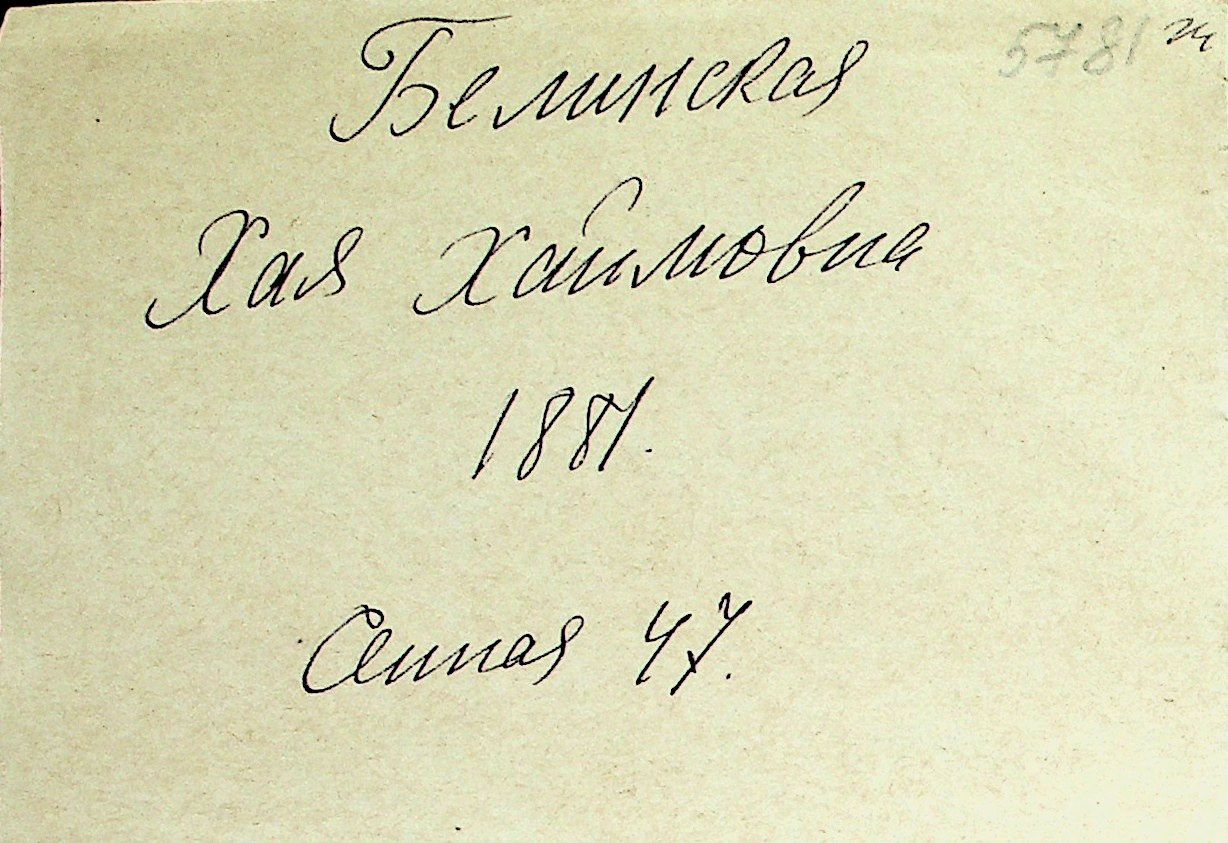 5781 ж
Белинская
Хая Хаимовна
1881.
Сенная 47.